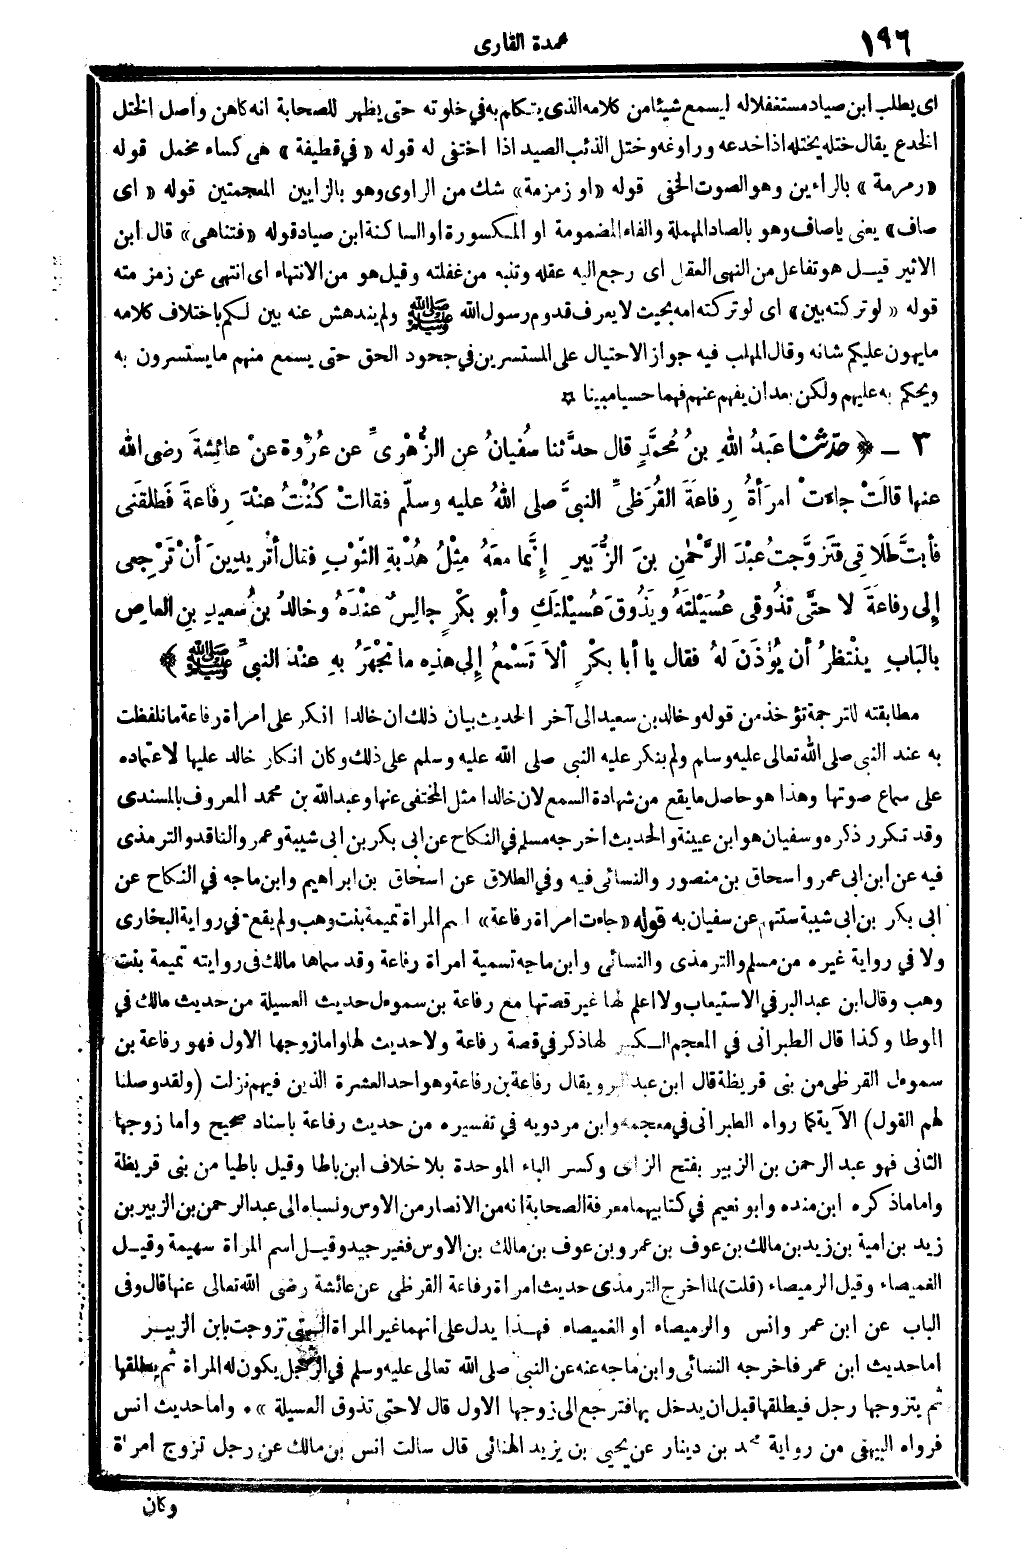 ١٩٦
عمدة القارى
اى يطلب ابن صياد مستغفلا له ليسمع شيئا من كلامه الذى يتكلم به في خلوته حتى يظهر للصحابة انه كاهن وأصل الختل
الخدع يقال ختله يختله اذا خدعه وراوغه وختل الذئب الصيد اذا اختفى له قوله «في قطيفة» هى كساء مخمل قوله
«رمرمة» بالراءين وهو الصوت الخفى قوله «او زمزمة» شك من الراوى وهو بالزايين المعجمتين قوله «اى
صاف» يعنى ياصاف وهو بالصاد المهملة والفاء المضمومة او المكسورة او الساكنة ابن صياد قوله «فتناهى» قال ابن
الاثير قيل هو تفاعل من النهى العقل اى رجع اليه عقله وتنبه من غفلته وقيل هو من الانتهاء اى انتهى عن زمزمته
قوله «لو تركته بين» اى لو تركته امه بحيث لا يعرف قدوم رسول الله ﷺ ولم يندهش عنه بين لكم باختلاف كلامه
مايهون عليكم شانه وقال المهلب فيه جواز الاحتيال على المستسرين في جحود الحق حتى يسمع منهم مايستسرون به
ويحكم به عليهم ولكن بعد ان يفهم عنهم فهما حسيا مبينا ✡
٣ ـ ﴿حدّثنا عَبدُ اللهِ بنُ مُحمَّدٍ قال حدَّثنا سُفيانُ عن الزُّهْرِىِّ عن عُرْوةَ عنْ عائِشةَ رضى الله
عنها قالَتْ جاءَتْ امرَأةُ رِفاعَةَ القُرَظىِّ النبىَّ صلى اللهُ عليه وسلّم فقالتْ كُنْتُ عنْدَ رِفاعةَ فَطلقَنى
فأبتَّ طَلاقى فتزوَّجتُ عبْدَ الرَّحْمٰنِ بنَ الزَّبيرِ إنَّما معَهُ مِثْلُ هُدْبةِ الثّوْبِ فقال أتُريدِينَ أنْ تَرْجِعى
إلى رفاعَةَ لا حتَّى تَذوقى عُسَيْلَتَهُ ويَذُوقَ عُسيْلتَكِ وأبو بكْرٍ جالِسٌ عنْدَهُ وخالدُ بنُ سعِيدِ بنِ العاصِ
بالبابِ ينْتظرُ أن يُؤذَنَ لهُ فقال يا أبا بكْرٍ ألاَ تَسْمعُ إلى هذِه ما تجْهَرُ بهِ عنْدَ النبىِّ ﷺ﴾
مطابقته للترجمة تؤخذ من قوله وخالد بن سعيد الى آخر الحديث بيان ذلك ان خالدا انكر على امرأة رفاعة ماتلفظت
به عند النبى صلى الله تعالى عليه وسلم ولم ينكر عليه النبى صلى الله عليه وسلم على ذلك وكان انكار خالد عليها لاعتماده
على سماع صوتها وهذا هو حاصل مايقع من شهادة السمع لان خالدا مثل المختفى عنها وعبد الله بن محمد المعروف بالمسندى
وقد تكرر ذكره وسفيان هو ابن عيينة والحديث اخرجه مسلم في النكاح عن ابى بكر بن ابى شيبة وعمرو الناقد والترمذى
فيه عن ابن ابى عمر واسحاق بن منصور والنسائى فيه وفي الطلاق عن اسحاق بن ابراهيم وابن ماجه في النكاح عن
ابى بكر بن ابى شيبة ستتهم عن سفيان به قوله «جاءت امرأة رفاعة» اسم المرأة تميمة بنت وهب ولم يقع في رواية البخارى
ولا في رواية غيره من مسلم والترمذى والنسائى وابن ماجه تسمية امرأة رفاعة وقد سماها مالك فى روايته تميمة بنت
وهب وقال ابن عبد البر في الاستيعاب ولا اعلم لها غير قصتها مع رفاعة بن سموءل حديث العسيلة من حديث مالك في
الموطا وكذا قال الطبرانى في المعجم الكبير لها ذكر في قصة رفاعة ولا حديث لها واما زوجها الاول فهو رفاعة بن
سموءل القرظى من بنى قريظة قال ابن عبد البر ويقال رفاعة بن رفاعة وهو احد العشرة الذين فيهم نزلت (ولقد وصلنا
لهم القول) الآية كما رواه الطبرانى في معجمه وابن مردويه في تفسيره من حديث رفاعة باسناد صحيح واما زوجها
الثانى فهو عبد الرحمن بن الزبير بفتح الزاى وكسر الباء الموحدة بلا خلاف ابن باطا وقيل باطيا من بنى قريظة
واما ماذكره ابن منده وابو نعيم في كتابيهما معرفة الصحابة انه من الانصار من الاوس ونسباه الى عبد الرحمن بن الزبير بن
زيد بن امية بن زيد بن مالك بن عوف بن عمرو بن عوف بن مالك بن الاوس فغير جيد وقيل اسم المرأة سهيمة وقيل
الغميصاء وقيل الرميصاء (قلت) لما اخرج الترمذى حديث امرأة رفاعة القرظى عن عائشة رضى الله تعالى عنها قال وفى
الباب عن ابن عمر وانس والرميصاء او الغميصاء فهذا يدل على انهما غير المرأة التى تزوجت بابن الزبير
اما حديث ابن عمر فاخرجه النسائى وابن ماجه عنه عن النبى صلى الله تعالى عليه وسلم في الرجل يكون له المرأة ثم يطلقها
ثم يتزوجها رجل فيطلقها قبل ان يدخل بها فترجع الى زوجها الاول قال لا حتى تذوق العسيلة» • واما حديث انس
فرواه البيهقى من رواية محمد بن دينار عن يحيى بن يزيد الهنائى قال سالت انس بن مالك عن رجل تزوج امرأة
وكان